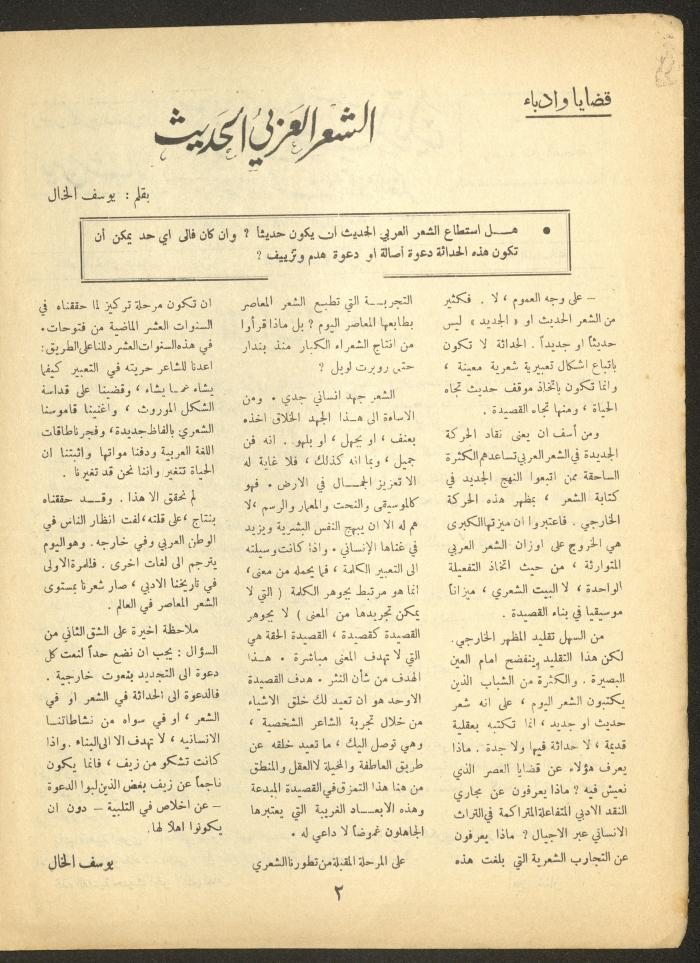 قضايا وادباء
الشعر العربي الحديث
بقلم : يوسف الخال
• هـــل استطاع الشعر العربي الحديث ان يكون حديثا ؟ وان كان فالى اي حد يمكن أن
تكون هذه الحداثة دعوة أصالة او دعوة هدم وتزييف ؟
– على وجه العموم ، لا . فكثير
من الشعر الحديث او « الجديد » ليس
حديثاً او جديداً . الحداثة لا تكون
باتباع اشكال تعبيرية شعرية معينة ،
وانما تكون باتخاذ موقف حديث تجاه
الحياة ، ومنها تجاه القصيدة .
ومن أسف ان يعنى نقاد الحركة
الجديدة في الشعر العربي تساعدهم الكثرة
الساحقة ممن اتبعوا النهج الجديد في
كتابة الشعر ، بمظهر هذه الحركة
الخارجي . فاعتبروا ان ميزتها الكبرى
هي الخروج على اوزان الشعر العربي
المتوارثة ، من حيث اتخاذ التفعيلة
الواحدة ، لا البيت الشعري ، ميزاناً
موسيقيا في بناء القصيدة .
من السهل تقليد المظهر الخارجي.
لكن هذا التقليد ينفضح امام العين
البصيرة . والكثرة من الشباب الذين
يكتبون الشعر اليوم ، على انه شعر
حديث او جديد ، انما تكتبه بعقلية
قديمة ، لا حداثة فيها ولا جدة . ماذا
يعرف هؤلاء عن قضايا العصر الذي
نعيش فيه ؟ ماذا يعرفون عن مجاري
النقد الادبي المتفاعلة المتراكمة في التراث
الانساني عبر الاجيال ؟ ماذا يعرفون
عن التجارب الشعرية التي بلغت هذه
التجربــة التي تطبـع الشعر المعاصر
بطابعها المعاصر اليوم ؟ بل ماذا قرأوا
من انتاج الشعراء الكبار منذ بندار
حتى روبرت لويل ؟
الشعر جهد انساني جدي . ومن
الاساءة الى هـــذا الجهد الخلاق اخذه
بعنف ، او بجهل ، او بلهو . انه فن
جميل ، وبما انه كذلك ، فلا غاية له
الا تعزيز الجمـــال في الارض . فهو
كالموسيقى والنحت والمعمار والرسم ، لا
هم له الا ان يبهج النفس البشرية ويزيد
في غناها الإنساني . واذا كانت وسيلته
الى التعبير الكلمة ، فما يحمله من معنى ،
انما هو مرتبط بجوهر الكلمة ( التي لا
يمكن تجريدها من المعنى ) لا بجوهر
القصيدة كقصيدة ، القصيدة الحقة هي
التي لا تهدف المعنى مباشرة . هـــذا
الهدف من شأن النثر . هدف القصيدة
الاوحد هو ان تعيد لك خلق الاشياء
من خلال تجربة الشاعر الشخصية ،
وهي توصل اليك ، ما تعيد خلقه عن
طريق العاطفة والمخيلة لا العقل والمنطق
من هنا هذا التمزق في القصيدة المبدعة
وهذه الابعـــاد الغريبة التي يعتبرها
الجاهلون غموضاً لا داعي له .
على المرحلة المقبلة من تطورنا الشعري
ان تكون مرحلة تركيز لما حققناه في
السنوات العشر الماضية من فتوحات .
في هذه السنوات العشر دللنا على الطريق :
اعدنا للشاعر حريته في التعبير كيفما
يشاء عما يشاء ، وقضينا على قداسة
الشكل الموروث ، واغنينا قاموسنا
الشعري بالفاظ جديدة ، وفجرنا طاقات
اللغة العربية ودفنا مواتها واثبتنا ان
الحياة تتغير واننا نحن قد تغيرنا .
لم نحقق الا هذا . وقـــد حققناه
بنتاج ، على قلته ، لفت انظار الناس في
الوطن العربي وفي خارجه . وهو اليوم
يترجم الى لغات اخرى . فللمرة الاولى
في تاريخنا الادبي ، صار شعرنا بمستوى
الشعر المعاصر في العالم .
ملاحظة اخيرة على الشق الثاني من
السؤال : يجب ان نضع حداً لنعت كل
دعوة الى التجديد بنعوت خارجية .
فالدعوة الى الحداثة في الشعر او في
الشعر ، او في سواه من نشاطاتنــا
الانسانيه ، لا تهدف الا الى البناء . واذا
كانت تشكو من زيف ، فانما يكون
ناجماً عن زيف بعض الذين لبوا الدعوة
– عن اخلاص في التلبية – دون ان
يكونوا اهلاً لها.
يوسف الخال
٢